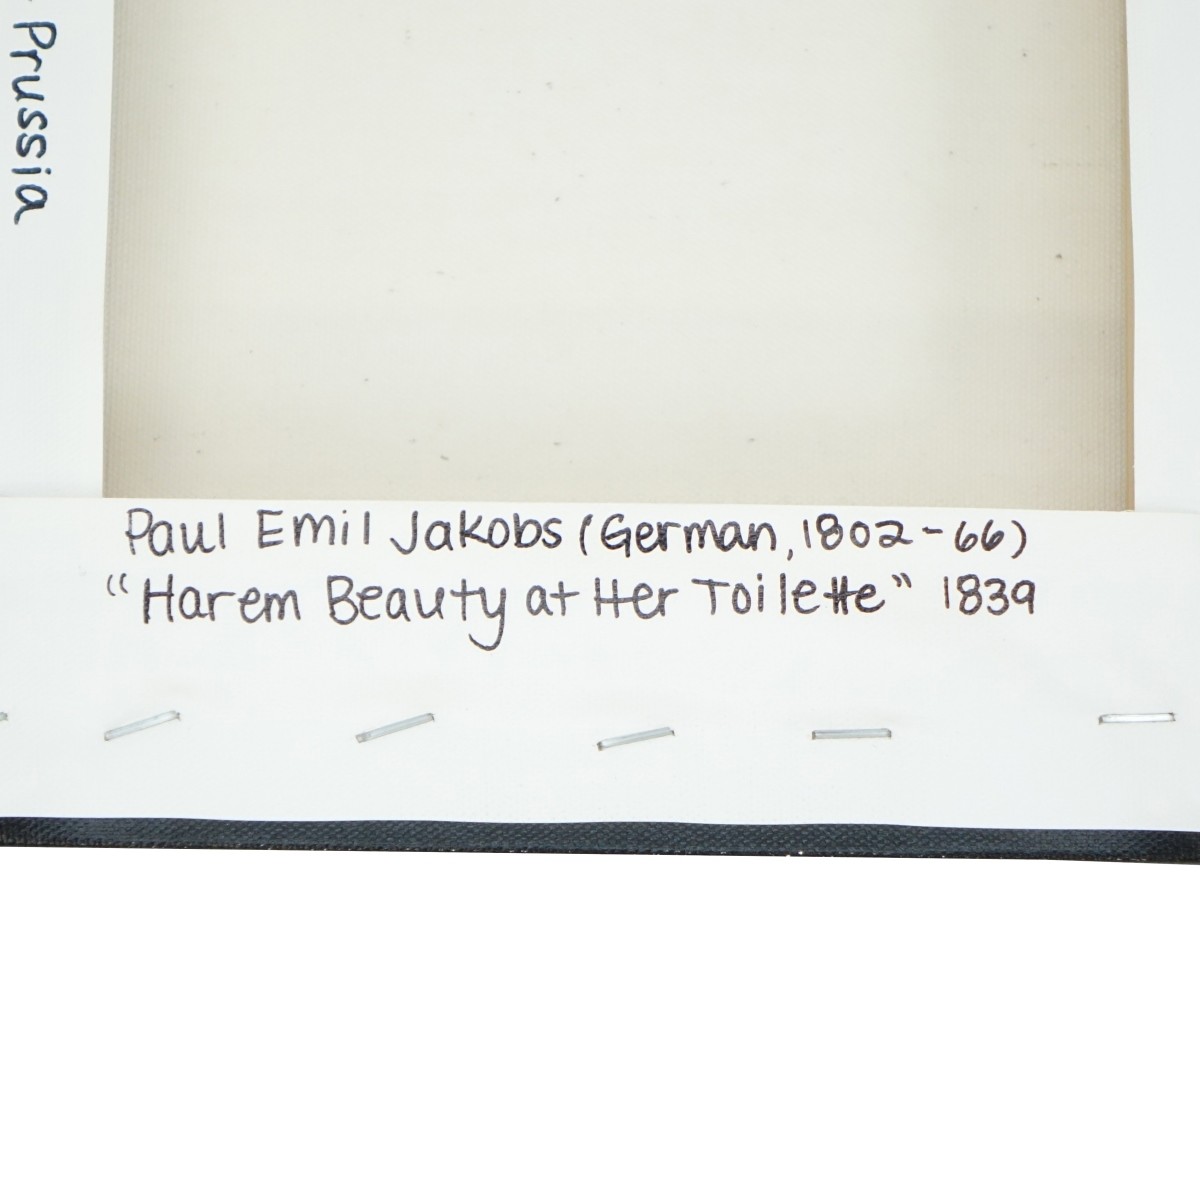 Prussia
Paul Emil Jakobs (German, 1802-66)
"Harem Beauty at Her Toilette" 1839